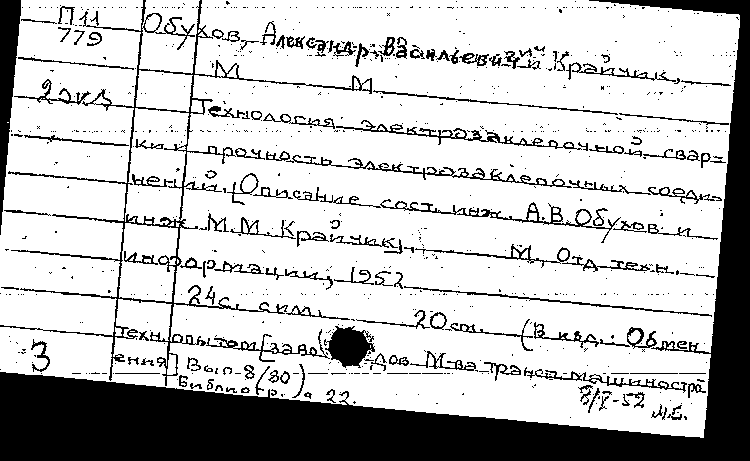 П11
779
Обухов, Александр Васильевич и Крайчик,
М М
2 экз
Технология электрозаклепочной свар-
ки и прочность электрозаклепочных соеди-
нений. [Описание сост. инж. А.В. Обухов и
инж. М.М. Крайчик]. М., Отд. техн.
информации, 1952
24с. с илл. 20 см. (В над.: Обмен
техн. опытом [заводов М-ва трансп. машиностро
ения] Вып. 8(30)
Библиогр. с 22.
3
8/X-52
М.Б.